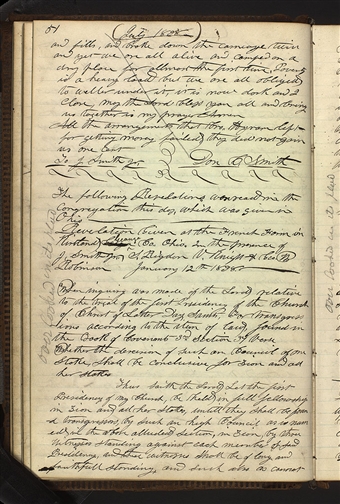 51
July 1838
and fills, and broke down the carriage twice
and yet we are all alive and camped on a
dry place for allmost the first time. Poverty
is a heavy load but we are all obliged
to welter under it, it is now dark and I
close, may the Lord bless you all and bring
us together is my prayer Amen
All the arrangements that Bro. Hyrum left
for getting money failed, they did not gain
us one cent.
To J. Smith Jr. Don C. Smith
The following Revelations were read in the
Congregation this day, which was given in
Ohio
Revelation Given at the French Farm in
Kirtland Geauga Co. Ohio. In the presence of
J. Smith Jr., S. Rigdon V. Knight & Geo. W.
Robinson January 12th 1838.
When inquiry was made of the Lord relative
to the trial of the first Presidency of the Church
of Christ of Latter Day Saints, For transgressions
according to the item of law, found in
the Book of Covenants 3rd Section 37 Verse
Whether the decision of such an Council of one
Stake, shall be conclusive for Zion and all
her stakes
Thus saith the Lord, Let the first
Presidency of my Church, be held in full fellowship
in Zion and all her stakes, until they shall be found
transgressors, by such an high Council as is named
in the above alluded section, in Zion, by three
witnesses standing against each member of said
Presidency, and these witnesses shall be of long and
faithfull standing, and such also as cannot